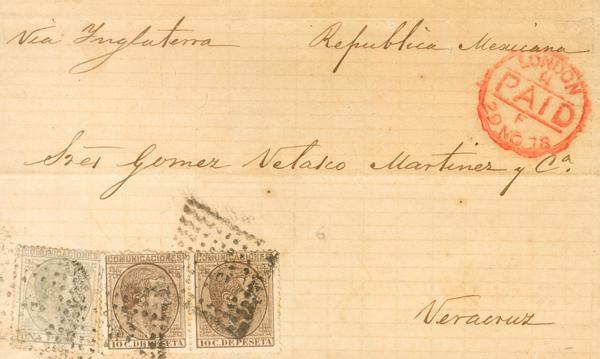 Via Inglaterra
Republica Mexicana
LONDON
PAID
F
29 NO 78
Sres Gomez Velasco Martinez y Cª.
COMUNICACIONES
COMUNICACIONES
10 C. DE PESETA
COMUNICACIONES
10 C. DE PESETA
Veracruz